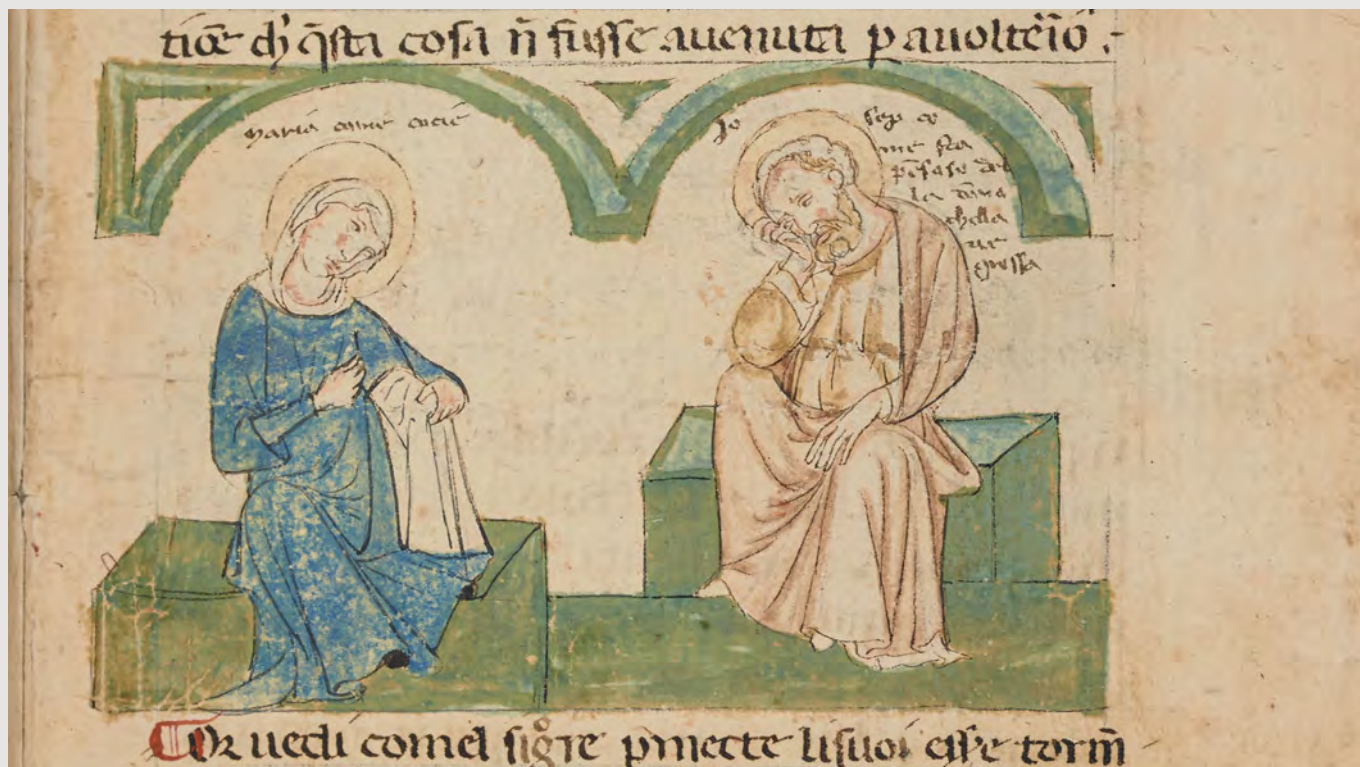 tiōe ch̄ q̄sta cosa n̄ fusse auenuta p auolteīo .
Maria come cucie
Josep co
me sta
pēsoso del
la dōna
chella
ue
grossa
Or uedi comel sigr̄e pmecte lisuoi esse̅ torm̄